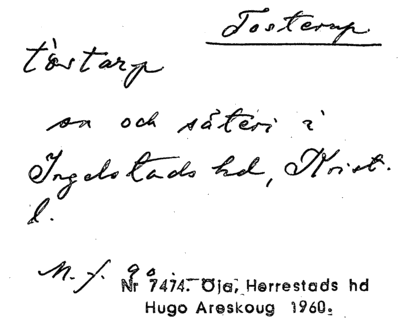 Tosterup
töstarp
sn och säteri i
Ingelstads hd, Krist.
l.
M. f. 90.
Nr 7474. Öja, Herrestads hd
Hugo Areskoug 1960.